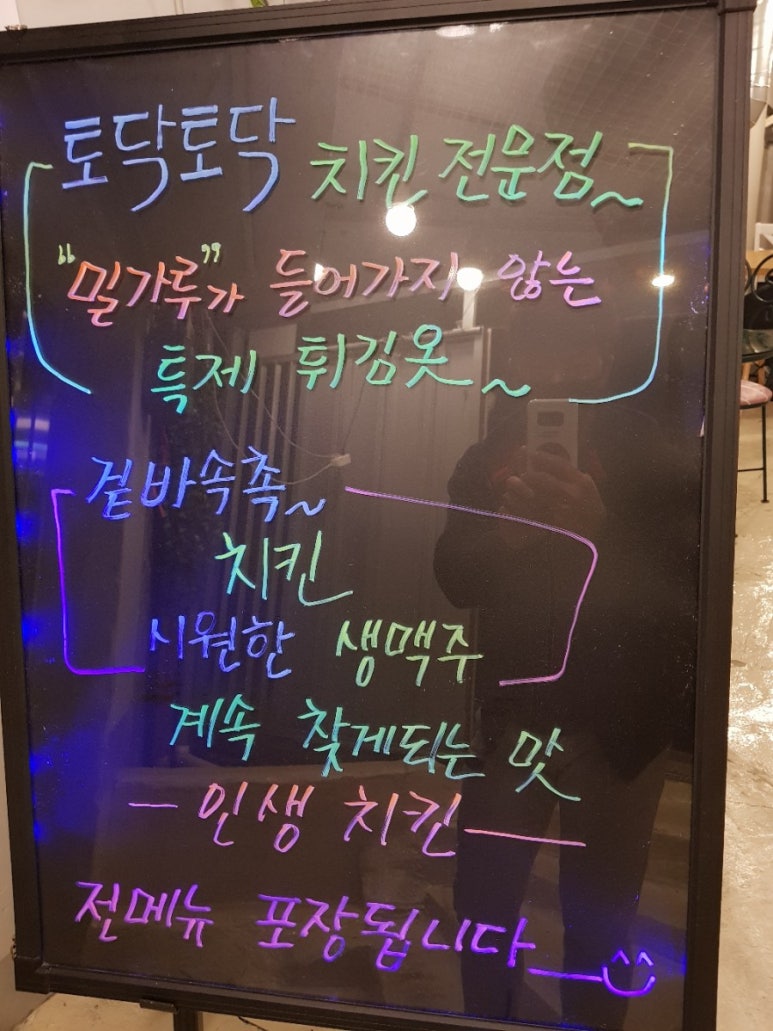 토닥토닥 치킨 전문점~
"밀가루"가 들어가지 않는
특제 튀김옷~
겉바속촉~
치킨
시원한 생맥주
계속 찾게되는 맛
- 인생 치킨 -
전메뉴 포장됩니다 ^^